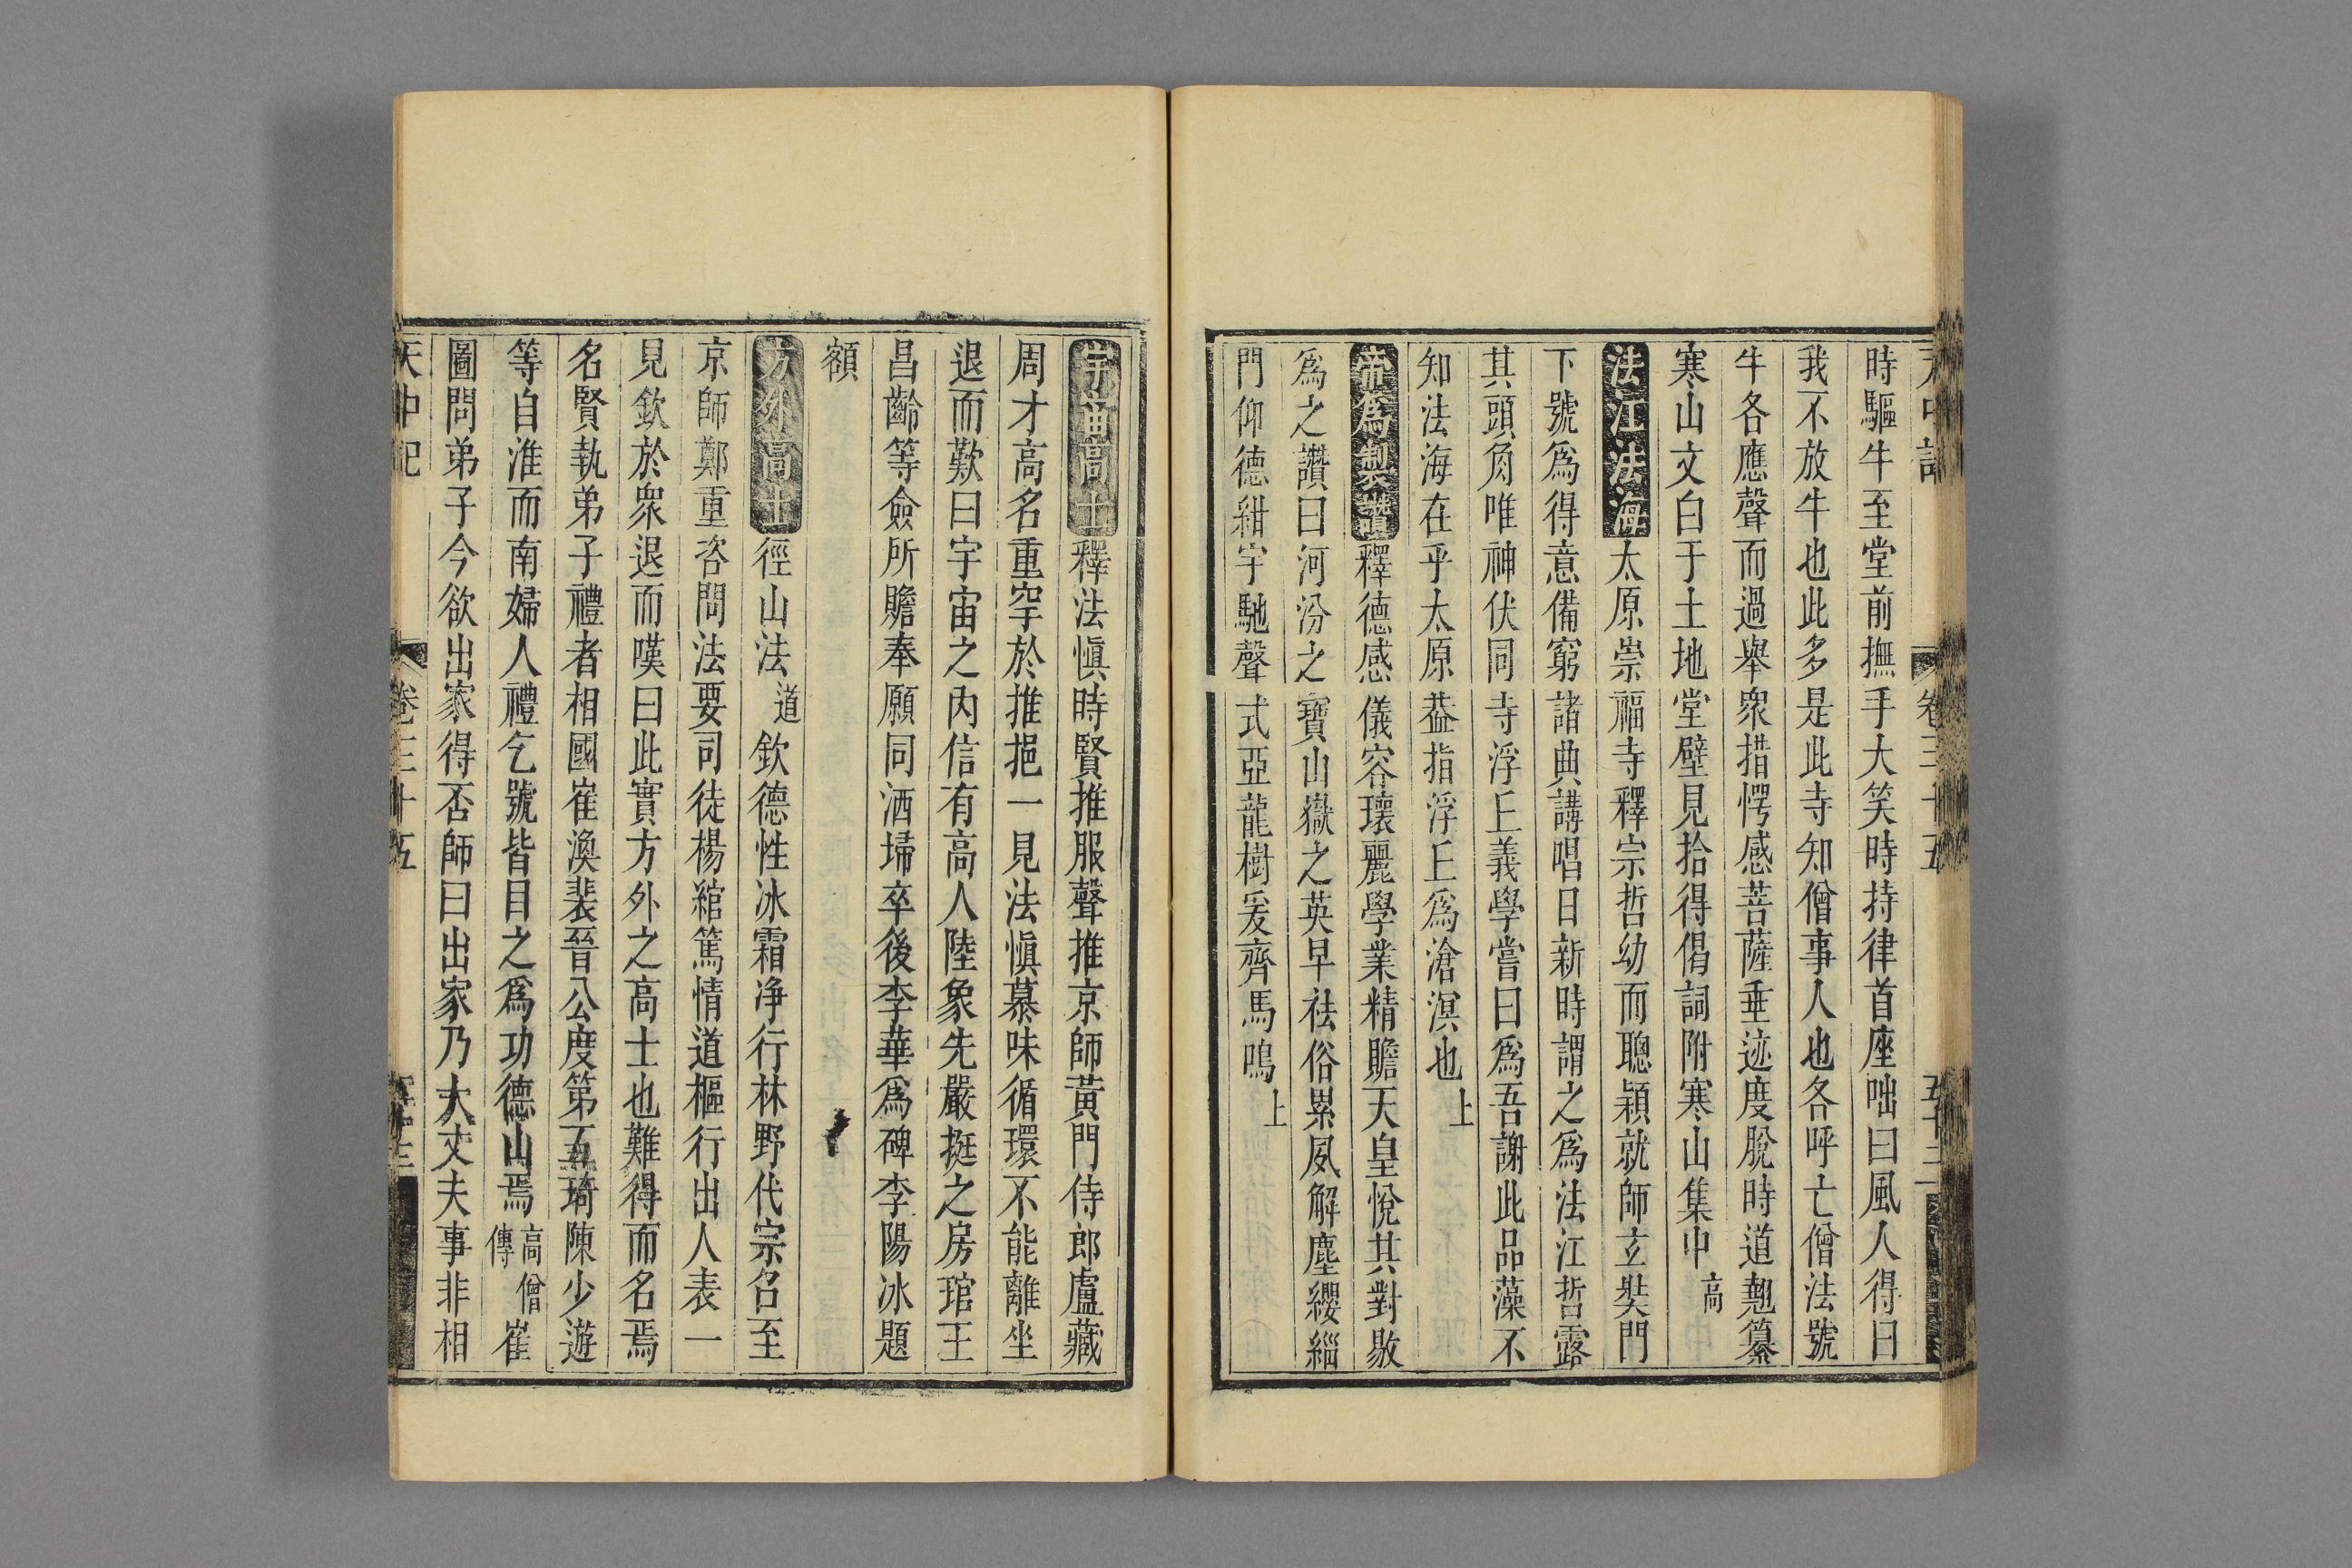 天中記 卷三十五 五十二
時驅牛至堂前撫手大笑時持律首座咄曰風人得曰
我不放牛也此多是此寺知僧事人也各呼亡僧法號
牛各應聲而過舉衆措愕感菩薩垂迹度脫時道翹纂
寒山文句于土地堂壁見拾得偈詞附寒山集中 高
法江法海 太原崇福寺釋宗哲幼而聰穎就師玄奘門
下號爲得意備窮諸典講唱日新時謂之爲法江哲露
其頭角唯神伏同寺浮丘義學嘗曰爲吾謝此品藻不
知法海在乎太原葢指浮丘爲滄溟也 上
帝為製讚 釋德感儀容瓌麗學業精贍天皇悅其對敭
爲之讚曰河汾之寶山嶽之英早祛俗累夙解塵纓緇
門仰德紺宇馳聲式亞龍樹爰齊馬鳴 上
宇宙高士 釋法慎時賢推服聲推京師黃門侍郎盧藏
周才高名重罕於推挹一見法慎慕味循環不能離坐
退而歎曰宇宙之內信有高人陸象先嚴挺之房琯王
昌齡等僉所瞻奉願同洒埽卒後李華爲碑李陽冰題
額
方外高士 徑山法道欽德性冰霜净行林野代宗召至
京師鄭重咨問法要司徒楊綰篤情道樞行出人表一
見欽於衆退而嘆曰此實方外之高士也難得而名焉
名賢執弟子禮者相國崔渙裴晉公度第五琦陳少遊
等自淮而南婦人禮乞號皆目之爲功德山焉 高僧傳 崔
圖問弟子今欲出家得否師曰出家乃大丈夫事非相
天中記 卷三十五